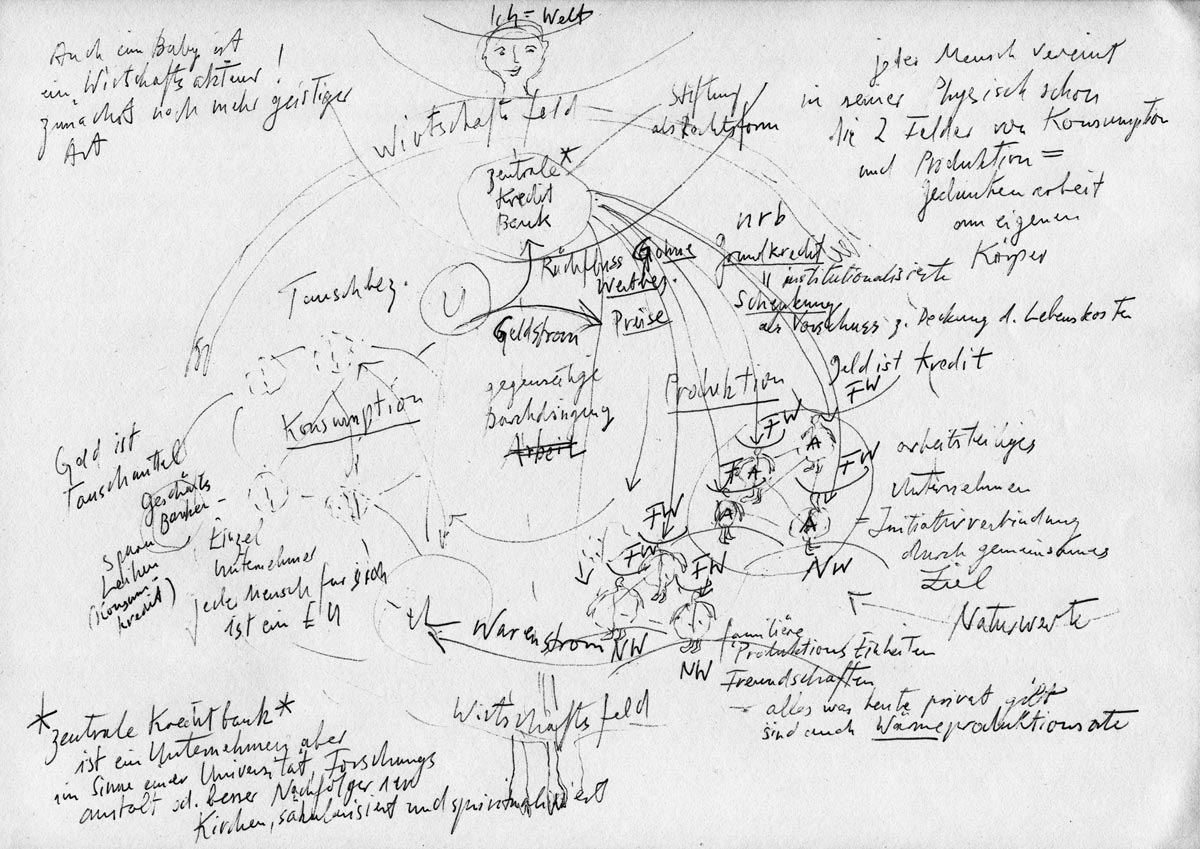 Ich = Welt
Auch ein Baby ist
ein Wirtschaftsakteur!
zunächst noch mehr geistiger
Art
Wirtschaftsfeld
Stiftung
als Rechtsform
jeder Mensch vereint
in seiner Physisch schon
die 2 Felder von Konsumption
und Produktion =
Gedankenarbeit
am eigenen
Körper
Zentrale*
Kredit
Bank
Tauschbez.
U
Rückfluss
Geldstrom
ohne
Wertbez.
Preise
nrb
Grundkredit
|| institutionalisierte
Schenkung
als Vorschuss z. Deckung d. Lebenskosten
Geld ist Kredit
gegenseitige
Durchdringung
Arbeit
Produktion
Konsumption
FW
FW
FW
F
A
A
A
A
NW
arbeitsteiliges
Unternehmen
= Initiativverbindung
durch gemeinsames
Ziel
Naturwerte
Geld ist
Tauschmittel
Geschäfts
Banken
sparen
Leihen
(Konsum
kredit)
Einzel
Unternehmer
jeder Mensch für sich
ist ein EU
FW
FW
FW
NW
NW
Warenstrom
familiäre
Produktions Einheiten
Freundschaften
→ alles was heute privat gilt
sind auch Wärmeproduktionsorte
Wirtschaftsfeld
*Zentrale Kreditbank*
ist ein Unternehmen aber
im Sinne einer Universität, Forschungs
anstalt od. besser Nachfolger von
Kirchen, säkularisiert und spiritualisiert